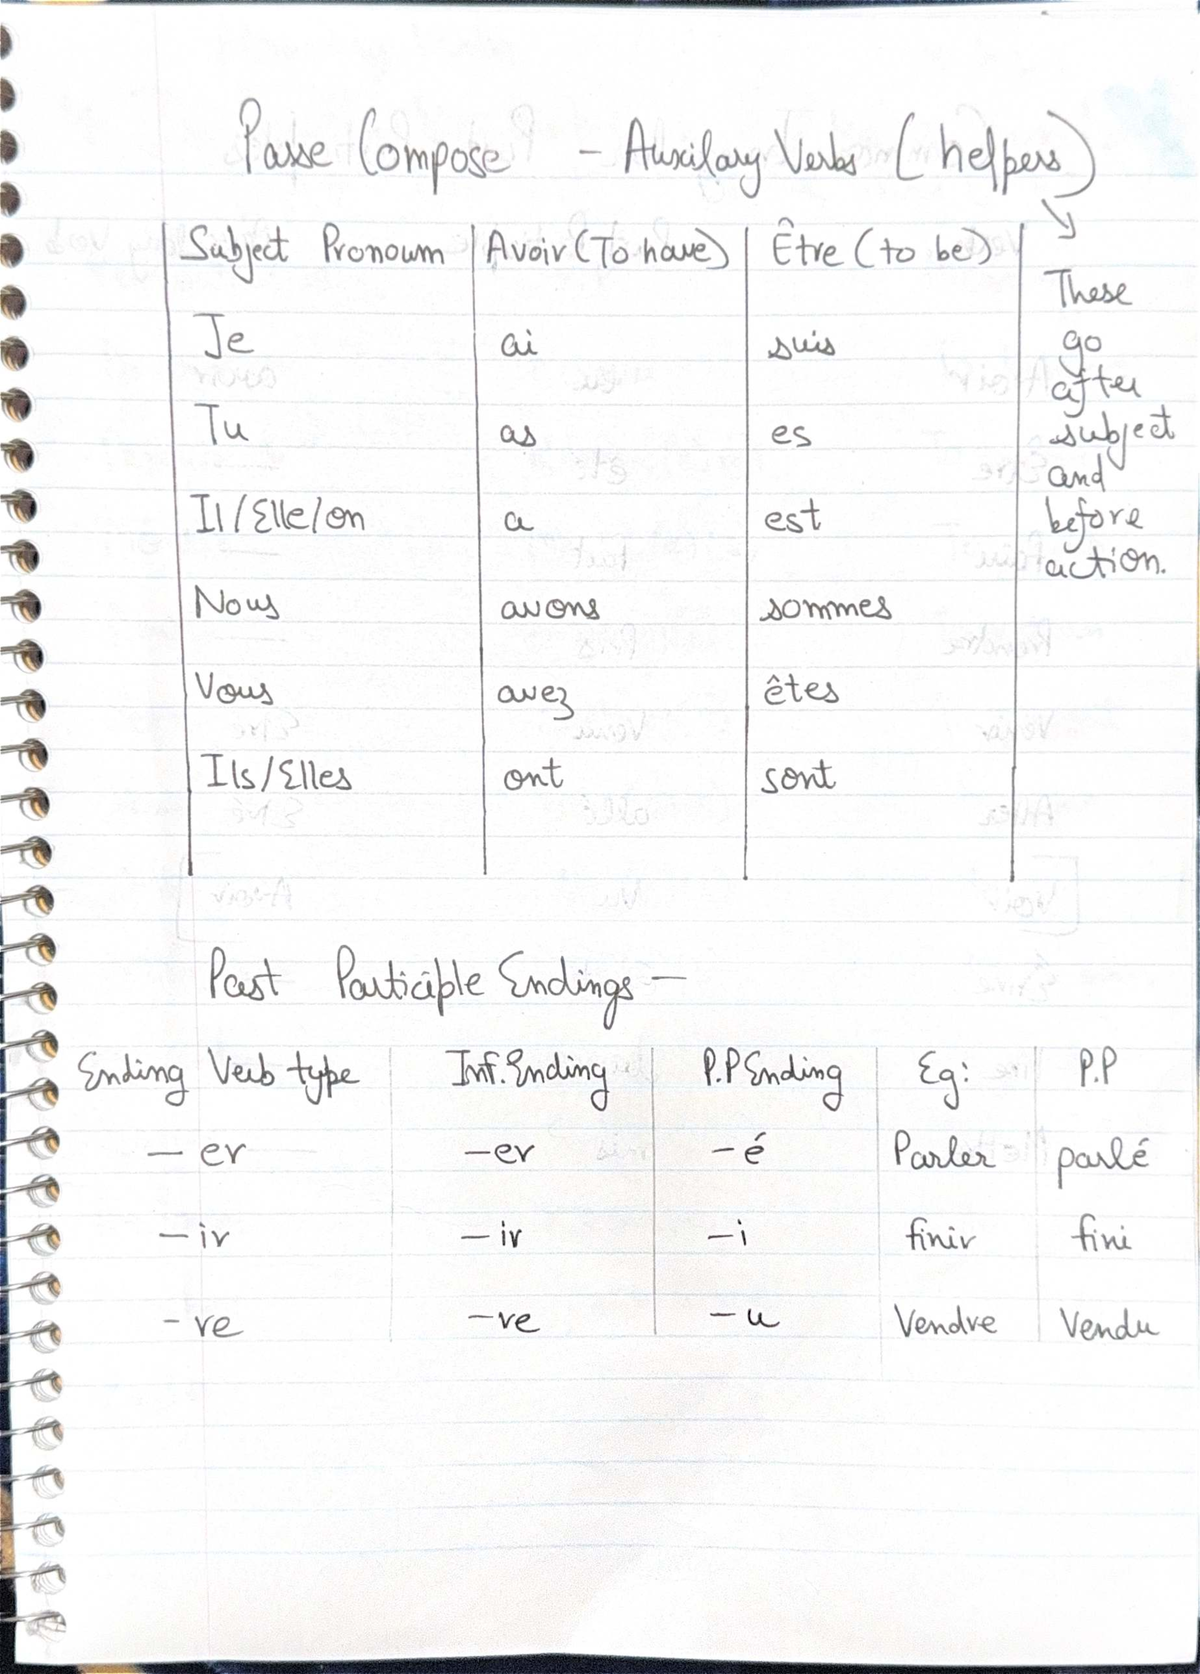 Passe Compose - Auxilary Verbs (helpers)
Subject Pronoum Avoir (To have) Être (to be)
Je ai suis
Tu as es
Il/Elle/on a est
Nous avons sommes
Vous avez êtes
Ils/Elles ont sont
These
go
after
subject
and
before
action.
Past Participle Endings -
Ending Verb type Inf. Ending P.P Ending Eg: P.P
- er -er -é Parler parlé
- ir - ir - i finir fini
- re - re - u Vendre Vendu